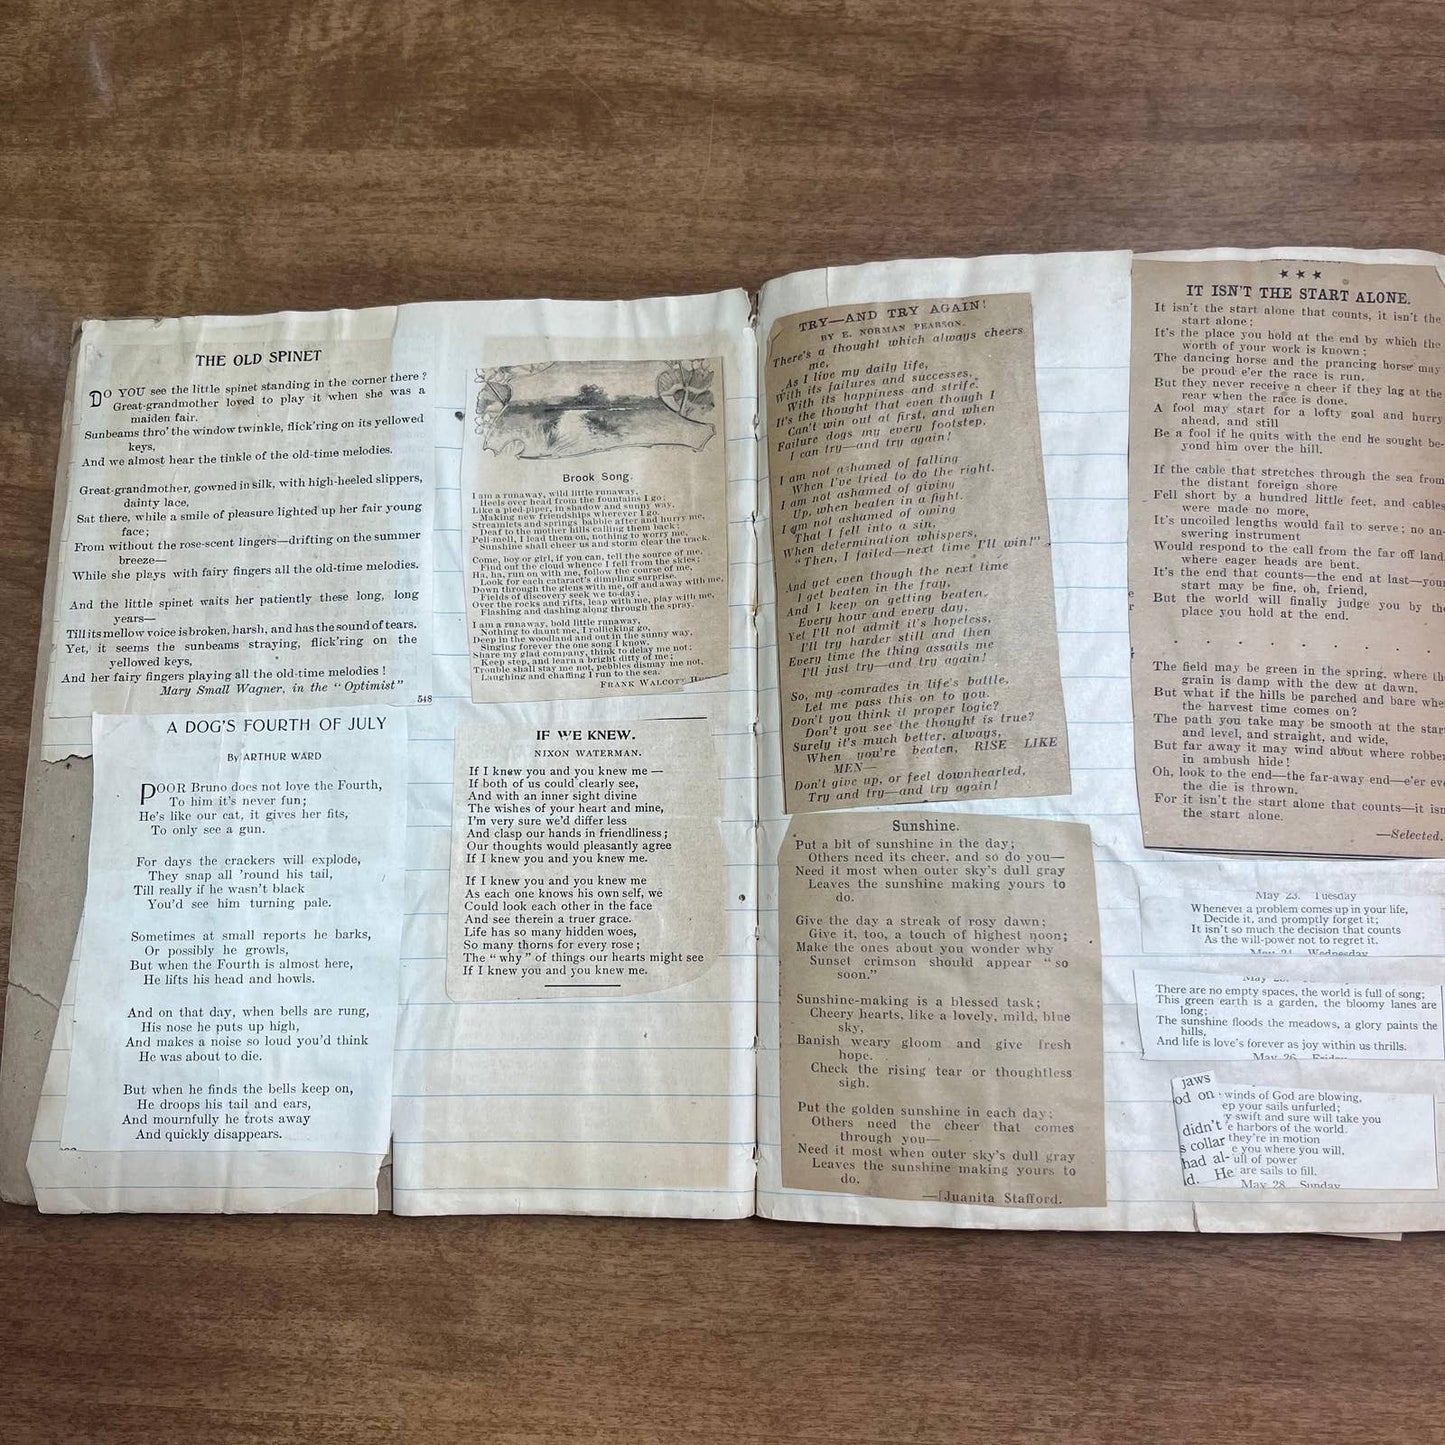 THE OLD SPINET
DO YOU see the little spinet standing in the corner there?
Great-grandmother loved to play it when she was a
maiden fair.
Sunbeams thro' the window twinkle, flick'ring on its yellowed
keys,
And we almost hear the tinkle of the old-time melodies.
Great-grandmother, gowned in silk, with high-heeled slippers,
dainty lace,
Sat there, while a smile of pleasure lighted up her fair young
face;
From without the rose-scent lingers—drifting on the summer
breeze—
While she plays with fairy fingers all the old-time melodies.
And the little spinet waits her patiently these long, long
years—
Till its mellow voice is broken, harsh, and has the sound of tears.
Yet, it seems the sunbeams straying, flick'ring on the
yellowed keys,
And her fairy fingers playing all the old-time melodies!
Mary Small Wagner, in the "Optimist"
548
A DOG'S FOURTH OF JULY
By ARTHUR WARD
POOR Bruno does not love the Fourth,
To him it's never fun;
He's like our cat, it gives her fits,
To only see a gun.
For days the crackers will explode,
They snap all 'round his tail,
Till really if he wasn't black
You'd see him turning pale.
Sometimes at small reports he barks,
Or possibly he growls,
But when the Fourth is almost here,
He lifts his head and howls.
And on that day, when bells are rung,
His nose he puts up high,
And makes a noise so loud you'd think
He was about to die.
But when he finds the bells keep on,
He droops his tail and ears,
And mournfully he trots away
And quickly disappears.
Brook Song.
I am a runaway, wild little runaway,
Heels over head from the fountains I go;
Like a pied-piper, in shadow and sunny way,
Making new friendships wherever I go.
Streamlets and springs babble after and hurry me,
Deaf to the mother hills calling them back;
Pell-mell, I lead them on, nothing to worry me,
Sunshine shall cheer us and storm clear the track.
Come, boy or girl, if you can, tell the source of me,
Find out the cloud whence I fell from the skies;
Ha, ha, run on with me, follow the course of me,
Look for each cataract's dimpling surprise.
Down through the glens with me, off and away with me,
Fields of discovery seek we to-day;
Over the rocks and rifts, leap with me, play with me,
Flashing and dashing along through the spray.
I am a runaway, bold little runaway,
Nothing to daunt me, I rollicking go,
Deep in the woodland and out in the sunny way,
Singing forever the one song I know.
Share my glad company, think to delay me not;
Keep step, and learn a bright ditty of me;
Trouble shall stay me not, pebbles dismay me not,
Laughing and chaffing I run to the sea.
FRANK WALCOTT
IF WE KNEW.
NIXON WATERMAN.
If I knew you and you knew me —
If both of us could clearly see,
And with an inner sight divine
The wishes of your heart and mine,
I'm very sure we'd differ less
And clasp our hands in friendliness;
Our thoughts would pleasantly agree
If I knew you and you knew me.
If I knew you and you knew me
As each one knows his own self, we
Could look each other in the face
And see therein a truer grace.
Life has so many hidden woes,
So many thorns for every rose;
The "why" of things our hearts might see
If I knew you and you knew me.
TRY—AND TRY AGAIN!
BY E. NORMAN PEARSON.
There's a thought which always cheers
me,
As I live my daily life,
With its failures and successes,
With its happiness and strife.
It's the thought that even though I
Can't win out at first, and when
Failure dogs my every footstep,
I can try—and try again!
I am not ashamed of falling
When I've tried to do the right.
I am not ashamed of giving
Up, when beaten in a fight.
I am not ashamed of owing
That I fell into a sin,
When determination whispers,
"Then, I failed—next time I'll win!"
And yet even though the next time
I get beaten in the fray,
And I keep on getting beaten,
Every hour and every day,
Yet I'll not admit it's hopeless,
I'll try harder still and then
Every time the thing assails me
I'll just try—and try again!
So, my comrades in life's battle,
Let me pass this on to you.
Don't you think it proper logic?
Don't you see the thought is true?
Surely it's much better, always,
When you're beaten, RISE LIKE
MEN—
Don't give up, or feel downhearted,
Try and try—and try again!
Sunshine.
Put a bit of sunshine in the day;
Others need its cheer, and so do you—
Need it most when outer sky's dull gray
Leaves the sunshine making yours to
do.
Give the day a streak of rosy dawn;
Give it, too, a touch of highest noon;
Make the ones about you wonder why
Sunset crimson should appear "so
soon."
Sunshine-making is a blessed task;
Cheery hearts, like a lovely, mild, blue
sky,
Banish weary gloom and give fresh
hope.
Check the rising tear or thoughtless
sigh.
Put the golden sunshine in each day;
Others need the cheer that comes
through you—
Need it most when outer sky's dull gray
Leaves the sunshine making yours to
do.
—[Juanita Stafford.
★ ★ ★
IT ISN'T THE START ALONE.
It isn't the start alone that counts, it isn't the
start alone;
It's the place you hold at the end by which the
worth of your work is known;
The dancing horse and the prancing horse may
be proud e'er the race is run,
But they never receive a cheer if they lag at the
rear when the race is done.
A fool may start for a lofty goal and hurry
ahead, and still
Be a fool if he quits with the end he sought be-
yond him over the hill.
If the cable that stretches through the sea from
the distant foreign shore
Fell short by a hundred little feet, and cables
were made no more,
It's uncoiled lengths would fail to serve; no an-
swering instrument
Would respond to the call from the far off land
where eager heads are bent.
It's the end that counts—the end at last—your
start may be fine, oh, friend,
But the world will finally judge you by the
place you hold at the end.
. . . . . . .
The field may be green in the spring, where th
grain is damp with the dew at dawn,
But what if the hills be parched and bare whe
the harvest time comes on?
The path you take may be smooth at the start
and level, and straight, and wide,
But far away it may wind about where robber
in ambush hide!
Oh, look to the end—the far-away end—e'er eve
the die is thrown.
For it isn't the start alone that counts—it isn
the start alone.
—Selected.
May 23. Tuesday
Whenever a problem comes up in your life,
Decide it, and promptly forget it;
It isn't so much the decision that counts
As the will-power not to regret it.
May 24. Wednesday
There are no empty spaces, the world is full of song;
This green earth is a garden, the bloomy lanes are
long;
The sunshine floods the meadows, a glory paints the
hills,
And life is love's forever as joy within us thrills.
May 26. Friday
jaws
od on
didn't
s collar
had al-
d. He
winds of God are blowing,
ep your sails unfurled;
y swift and sure will take you
e harbors of the world.
they're in motion
e you where you will,
ull of power
are sails to fill.
May 28. Sunday